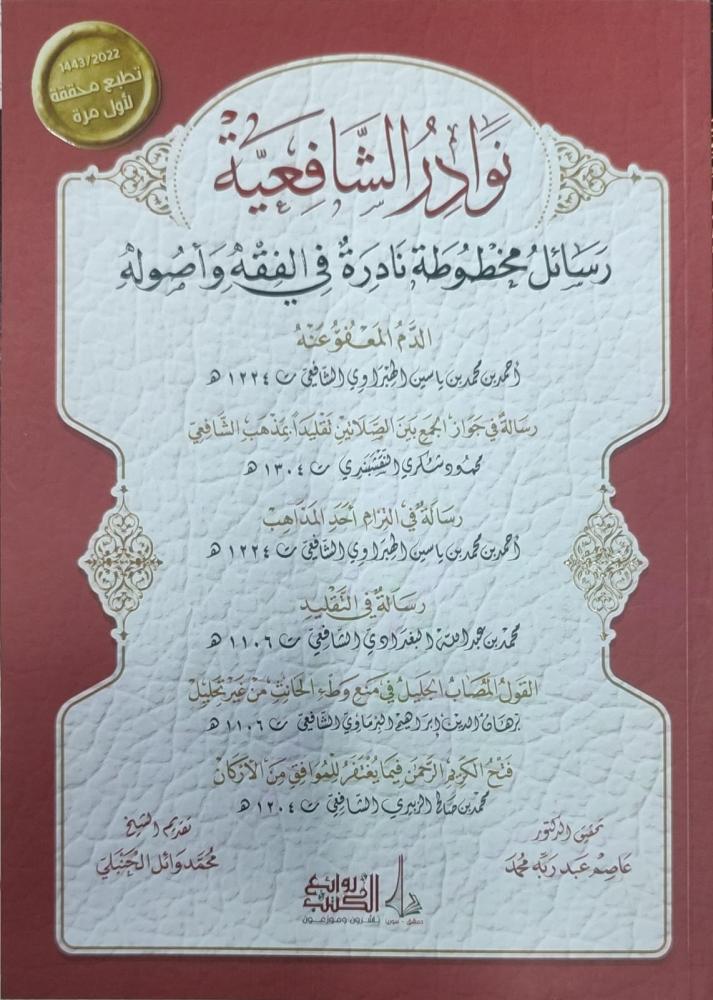 1443/2022
تطبع محققة
لأول مرة
نَوَادِرُ الشَّافِعِيَّة
رَسَائِلُ مَخْطُوطَة نَادِرَةٌ فِي الفِقْهِ وَأُصُولِهِ
الدَّمُ المَعْفُوُّ عَنْهُ
أحمد بن محمد بن ياسين الهبراوي الشافعي ت ١٢٢٤ هـ
رسَالَةٌ في جَوَازِ الجَمْعِ بَيْنَ الصَّلَاتَيْنِ تَقْلِيدَاً بِمَذْهَبِ الشَّافِعِيّ
محمود شكري النقشبندي ت ١٣٠٤ هـ
رِسَالَةٌ في التِزَامِ أَحَدِ المَذَاهِبِ
أحمد بن محمد بن ياسين الهبراوي الشافعي ت ١٢٢٤ هـ
رِسَالَةٌ في التَّقْلِيدِ
محمد بن عبد الله البغدادي الشافعي ت ١١٠٦ هـ
القَولُ المُصَابُ الجَلِيلُ فِي مَنْعِ وَطْءِ الحَانِثِ مِنْ غَيْرِ تَحْلِيْلٍ
برهان الدين إبراهيم البرماوي الشافعي ت ١١٠٦ هـ
فَتْحُ الكَرِيمِ الرَّحْمَنِ فِيمَا يُغْتَفَرُ لِلْمُوَافِقِ مِنَ الأَرْكَانِ
محمد بن صالح الزبيري الشافعي ت ١٢٠٤ هـ
تحقيق الدكتور
عَاصِم عَبد رَبِّه مُحَمد
تقديم الشيخ
مُحَمَّد وَائِل الحَنْبَلِيّ
روائع
الكتب
ناشرون وموزعون
دمشق - سوريا